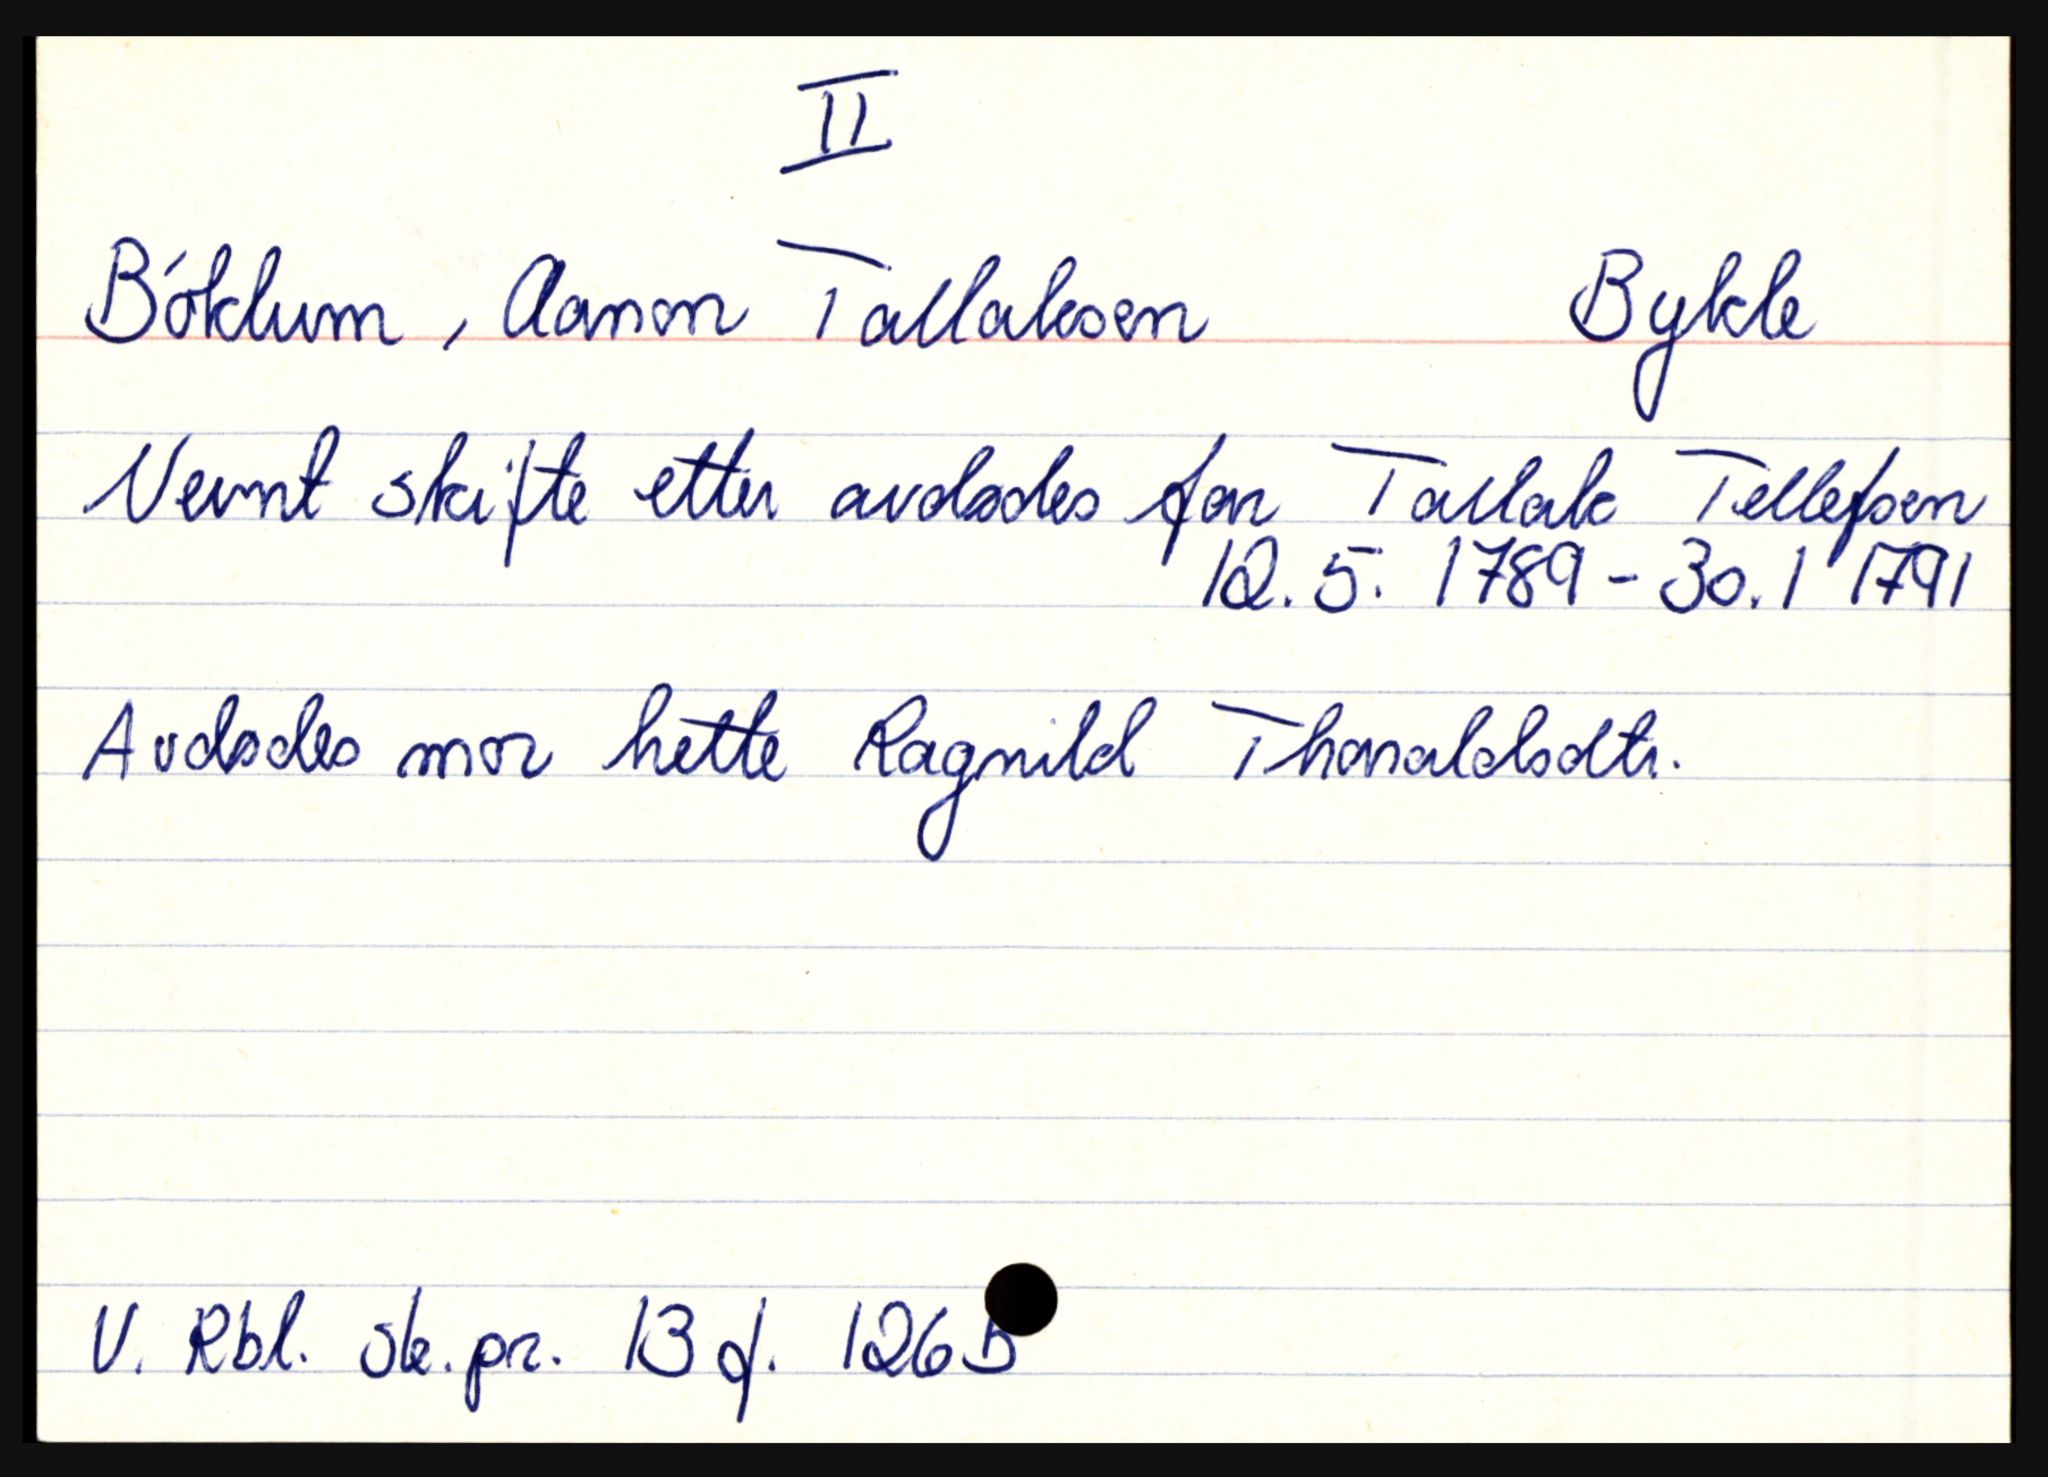 II
Bóklum, Aanon Tallaksen Bykle
Nevnt skifte etter avdødes far Tallak Tellefsen
12. 5. 1789 - 30. 1 1791
Avdødes mor hette Ragnild Thoraldsdtr.
V. Rbl. sk. pr. 13 f. 126b